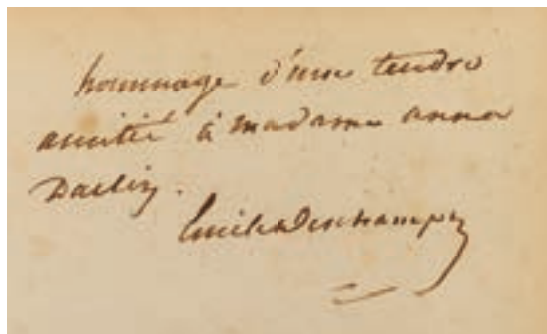 hommage d'une tendre
amitié à madame anna
Emile Deschamps